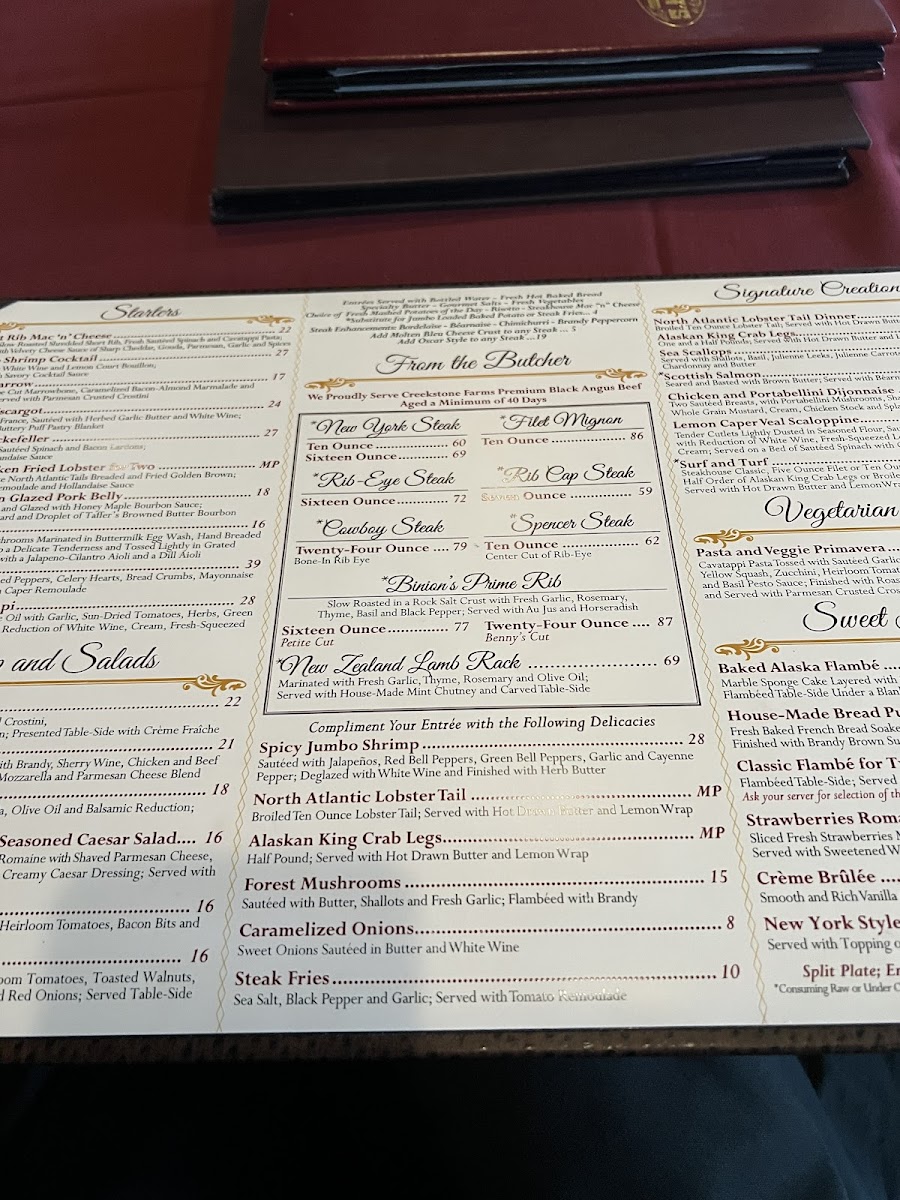 Starters
t Rib Mac 'n' Cheese 22
Slow Roasted Shredded Short Rib, Fresh Sautéed Spinach and Cavatappi Pasta;
with Velvety Cheese Sauce of Sharp Cheddar, Gouda, Parmesan, Garlic and Spices
Shrimp Cocktail 27
White Wine and Lemon Court Bouillon;
Savory Cocktail Sauce
arrow 17
e Cut Marrowbone, Caramelized Bacon-Almond Marmalade and
erved with Parmesan Crusted Crostini
scargot 24
France, Sautéed with Herbed Garlic Butter and White Wine;
uttery Puff Pastry Blanket
ckefeller 27
Sautéed Spinach and Bacon Lardons;
andaise Sauce
ken Fried Lobster for Two MP
e North Atlantic Tails Breaded and Fried Golden Brown;
emoulade and Hollandaise Sauce
n Glazed Pork Belly 18
and Glazed with Honey Maple Bourbon Sauce;
ard and Droplet of Taffer's Browned Butter Bourbon
16
shrooms Marinated in Buttermilk Egg Wash, Hand Breaded
o a Delicate Tenderness and Tossed Lightly in Grated
with a Jalapeno-Cilantro Aioli and a Dill Aioli
39
ed Peppers, Celery Hearts, Bread Crumbs, Mayonnaise
Caper Remoulade
pi 28
e Oil with Garlic, Sun-Dried Tomatoes, Herbs, Green
Reduction of White Wine, Cream, Fresh-Squeezed
and Salads
22
Crostini,
n; Presented Table-Side with Crème Fraîche
21
ith Brandy, Sherry Wine, Chicken and Beef
Mozzarella and Parmesan Cheese Blend
18
a, Olive Oil and Balsamic Reduction;
Seasoned Caesar Salad.... 16
Romaine with Shaved Parmesan Cheese,
Creamy Caesar Dressing; Served with
16
Heirloom Tomatoes, Bacon Bits and
16
oom Tomatoes, Toasted Walnuts,
d Red Onions; Served Table-Side
Entrées Served with Bottled Water - Fresh Hot Baked Bread
Specialty Butter - Gourmet Salts - Fresh Vegetables
Choice of Fresh Mashed Potatoes of the Day - Risotto - Steakhouse Mac "n" Cheese
*Substitute for Jumbo Loaded Baked Potato or Steak Fries... 4
Steak Enhancements: Bordelaise - Béarnaise - Chimichurri - Brandy Peppercorn
Add Molten Bleu Cheese Crust to any Steak ... 5
Add Oscar Style to any Steak ...19
From the Butcher
We Proudly Serve Creekstone Farms Premium Black Angus Beef
Aged a Minimum of 40 Days
*New York Steak
Ten Ounce 60
Sixteen Ounce 69
*Filet Mignon
Ten Ounce 86
*Rib-Eye Steak
Sixteen Ounce 72
*Rib Cap Steak
Ounce 59
*Cowboy Steak
Twenty-Four Ounce .... 79
Bone-In Rib Eye
*Spencer Steak
Ten Ounce 62
Center Cut of Rib-Eye
*Binion's Prime Rib
Slow Roasted in a Rock Salt Crust with Fresh Garlic, Rosemary,
Thyme, Basil and Black Pepper; Served with Au Jus and Horseradish
Sixteen Ounce 77
Petite Cut
Twenty-Four Ounce .... 87
Benny's Cut
*New Zealand Lamb Rack 69
Marinated with Fresh Garlic, Thyme, Rosemary and Olive Oil;
Served with House-Made Mint Chutney and Carved Table-Side
Compliment Your Entrée with the Following Delicacies
Spicy Jumbo Shrimp 28
Sautéed with Jalapeños, Red Bell Peppers, Green Bell Peppers, Garlic and Cayenne
Pepper; Deglazed with White Wine and Finished with Herb Butter
North Atlantic Lobster Tail MP
Broiled Ten Ounce Lobster Tail; Served with Hot Drawn Butter and Lemon Wrap
Alaskan King Crab Legs MP
Half Pound; Served with Hot Drawn Butter and Lemon Wrap
Forest Mushrooms 15
Sautéed with Butter, Shallots and Fresh Garlic; Flambéed with Brandy
Caramelized Onions 8
Sweet Onions Sautéed in Butter and White Wine
Steak Fries 10
Sea Salt, Black Pepper and Garlic; Served with Tomato Remoulade
Signature Creation
North Atlantic Lobster Tail Dinner
Broiled Ten Ounce Lobster Tail; Served with Hot Drawn Butt
Alaskan King Crab Legs
One and a Half Pounds; Served with Hot Drawn Butter and L
Sea Scallops
Served with Shallots, Basil, Julienne Leeks, Julienne Carrots
Chardonnay and Butter
*Scottish Salmon
Seared and Basted with Brown Butter; Served with Béarn
Chicken and Portabellini Dijonnaise
Two Sautéed Breasts, with Portabellini Mushrooms, Sha
Whole Grain Mustard, Cream, Chicken Stock and Spla
Lemon Caper Veal Scaloppine
Tender Cutlets Lightly Dusted in Seasoned Flour, Sau
with Reduction of White Wine, Fresh-Squeezed L
Cream; Served on a Bed of Sautéed Spinach with C
*Surf and Turf
Steakhouse Classic, Five Ounce Filet or Ten Oun
Half Order of Alaskan King Crab Legs or Broile
Served with Hot Drawn Butter and Lemon Wrap
Vegetarian
Pasta and Veggie Primavera
Cavatappi Pasta Tossed with Sautéed Garlic
Yellow Squash, Zucchini, Heirloom Tomato
and Basil Pesto Sauce; Finished with Roas
and Served with Parmesan Crusted Crost
Sweet
Baked Alaska Flambé
Marble Sponge Cake Layered with
Flambéed Table-Side Under a Blan
House-Made Bread Pu
Fresh Baked French Bread Soake
Finished with Brandy Brown Su
Classic Flambé for T
Flambéed Table-Side; Served
Ask your server for selection of th
Strawberries Roma
Sliced Fresh Strawberries M
Served with Sweetened W
Crème Brûlée
Smooth and Rich Vanilla
New York Style
Served with Topping o
Split Plate; En
*Consuming Raw or Under C